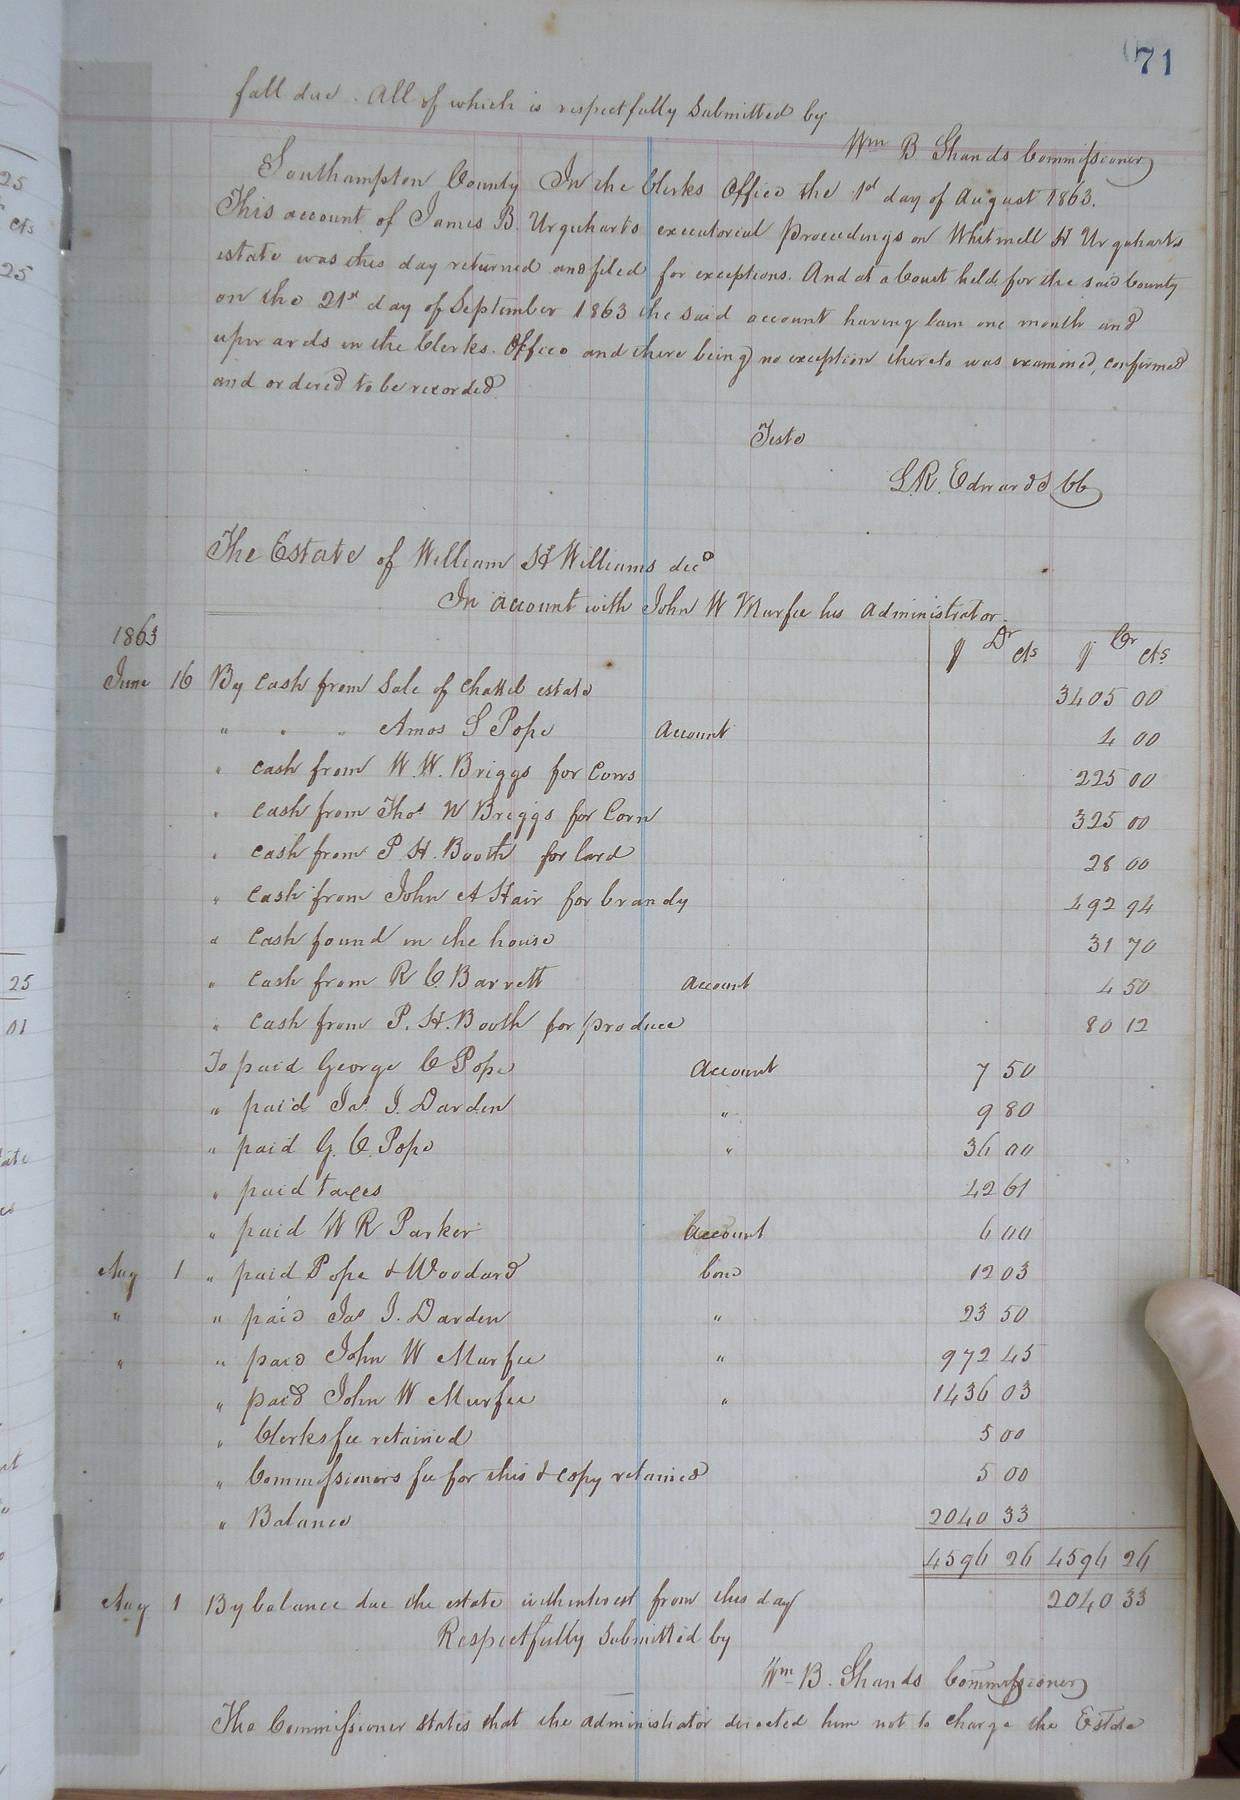 71
fall due. All of which is respectfully submitted by
Wm B Shands Commissioner
Southampton County In the Clerks Office the 1st day of August 1863.
This account of James B. Urquharts executorial proceedings on Whitmell H Urquharts
estate was this day returned and filed for exceptions. And at a Court held for the said County
on the 21st day of September 1863 the said account having lain one month and
upwards in the Clerks Office and there being no exception thereto was examined, confirmed
and ordered to be recorded.
Teste
L.R. Edwards CC
The Estate of William H Williams decd
In account with John W Murfee his administrator.
1863 $ Dr cts $ Cr cts
June 16 By cash from sale of chattel estate 3405 00
" " " Amos S Pope account 4 00
" cash from W. W. Briggs for Cows 225 00
" cash from Thos W Briggs for Corn 325 00
" cash from P. H. Booth for Lard 28 00
" cash from John A Hair for brandy 492 94
" cash found in the house 31 70
" cash from R C Barrett account 4 50
" cash from P. H. Booth for produce 80 12
To paid George C Pope account 7 50
" paid Jas J. Darden " 9 80
" paid G. C. Pope " 36 00
" paid taxes 42 61
" paid W R Parker account 6 00
Aug 1 " paid Pope & Woodard bond 12 03
" " paid Jas J. Darden " 23 50
" " paid John W Murfee " 972 45
" paid John W Murfee " 1436 03
" Clerks fee retained 5 00
" Commissioners fee for this & copy retained 5 00
" Balance 2040 33
4596 26 4596 26
Aug 1 By balance due the estate with interest from this day 2040 33
Respectfully submitted by
Wm B. Shands Commissioner
The Commissioner states that the administrator directed him not to charge the Estate